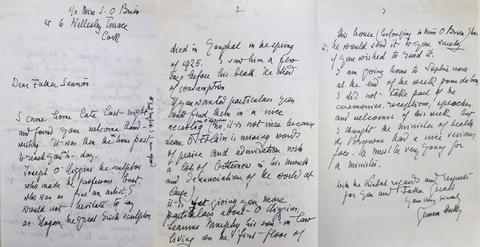 c/o Miss S. O'Brien
at 6 Wellesley Terrace
Cork
Dear Father Senan
I came home late last night
and found your welcome hand
writing. It was then the more past
Joseph O Higgins the sculptor
who made the professor's bust
who was as fine an artist I
would not hesitate to say
as the great sculptor
2
died in Youghal in the spring
of 1925. I saw him a few
days before his death. He died
of consumption
If you wanted particulars you
could find them in a nice
no, it is not nice because
Sean O'Faolain is mixing words
of praise and admiration with
a lot of bitterness in his mouth
and denunciation of the world at
large
is giving you more
particulars about O Higgins,
Seamus Murphy his son in law
living on the first floor of
3
this house (belonging to Miss O'Brien) has
he would send it to you surely
if you wished to read it.
I am going home to
at the end of the week
I did not take part of the
ceremonies, receptions, speeches
and welcomes of this week. But
I thought the minister of health
had a nice
face. He must be very young for
a minister.
with the kindest regards and respects
for you and Father
yours very sincerely